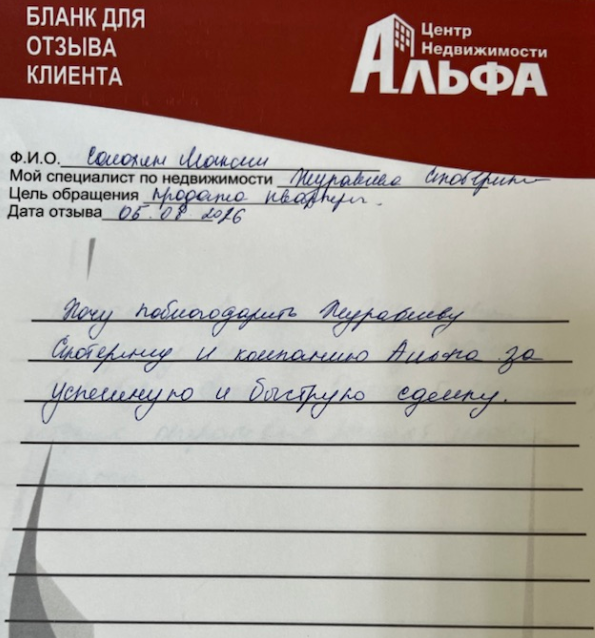 БЛАНК ДЛЯ
ОТЗЫВА
КЛИЕНТА
Центр
Недвижимости
АЛЬФА
Ф.И.О. Солохин Максим
Мой специалист по недвижимости Журавлева Екатерина
Цель обращения продажа квартиры.
Дата отзыва 05.08 2026
Хочу поблагодарить Журавлеву
Екатерину и компанию Альфа за
успешную и быструю сделку.